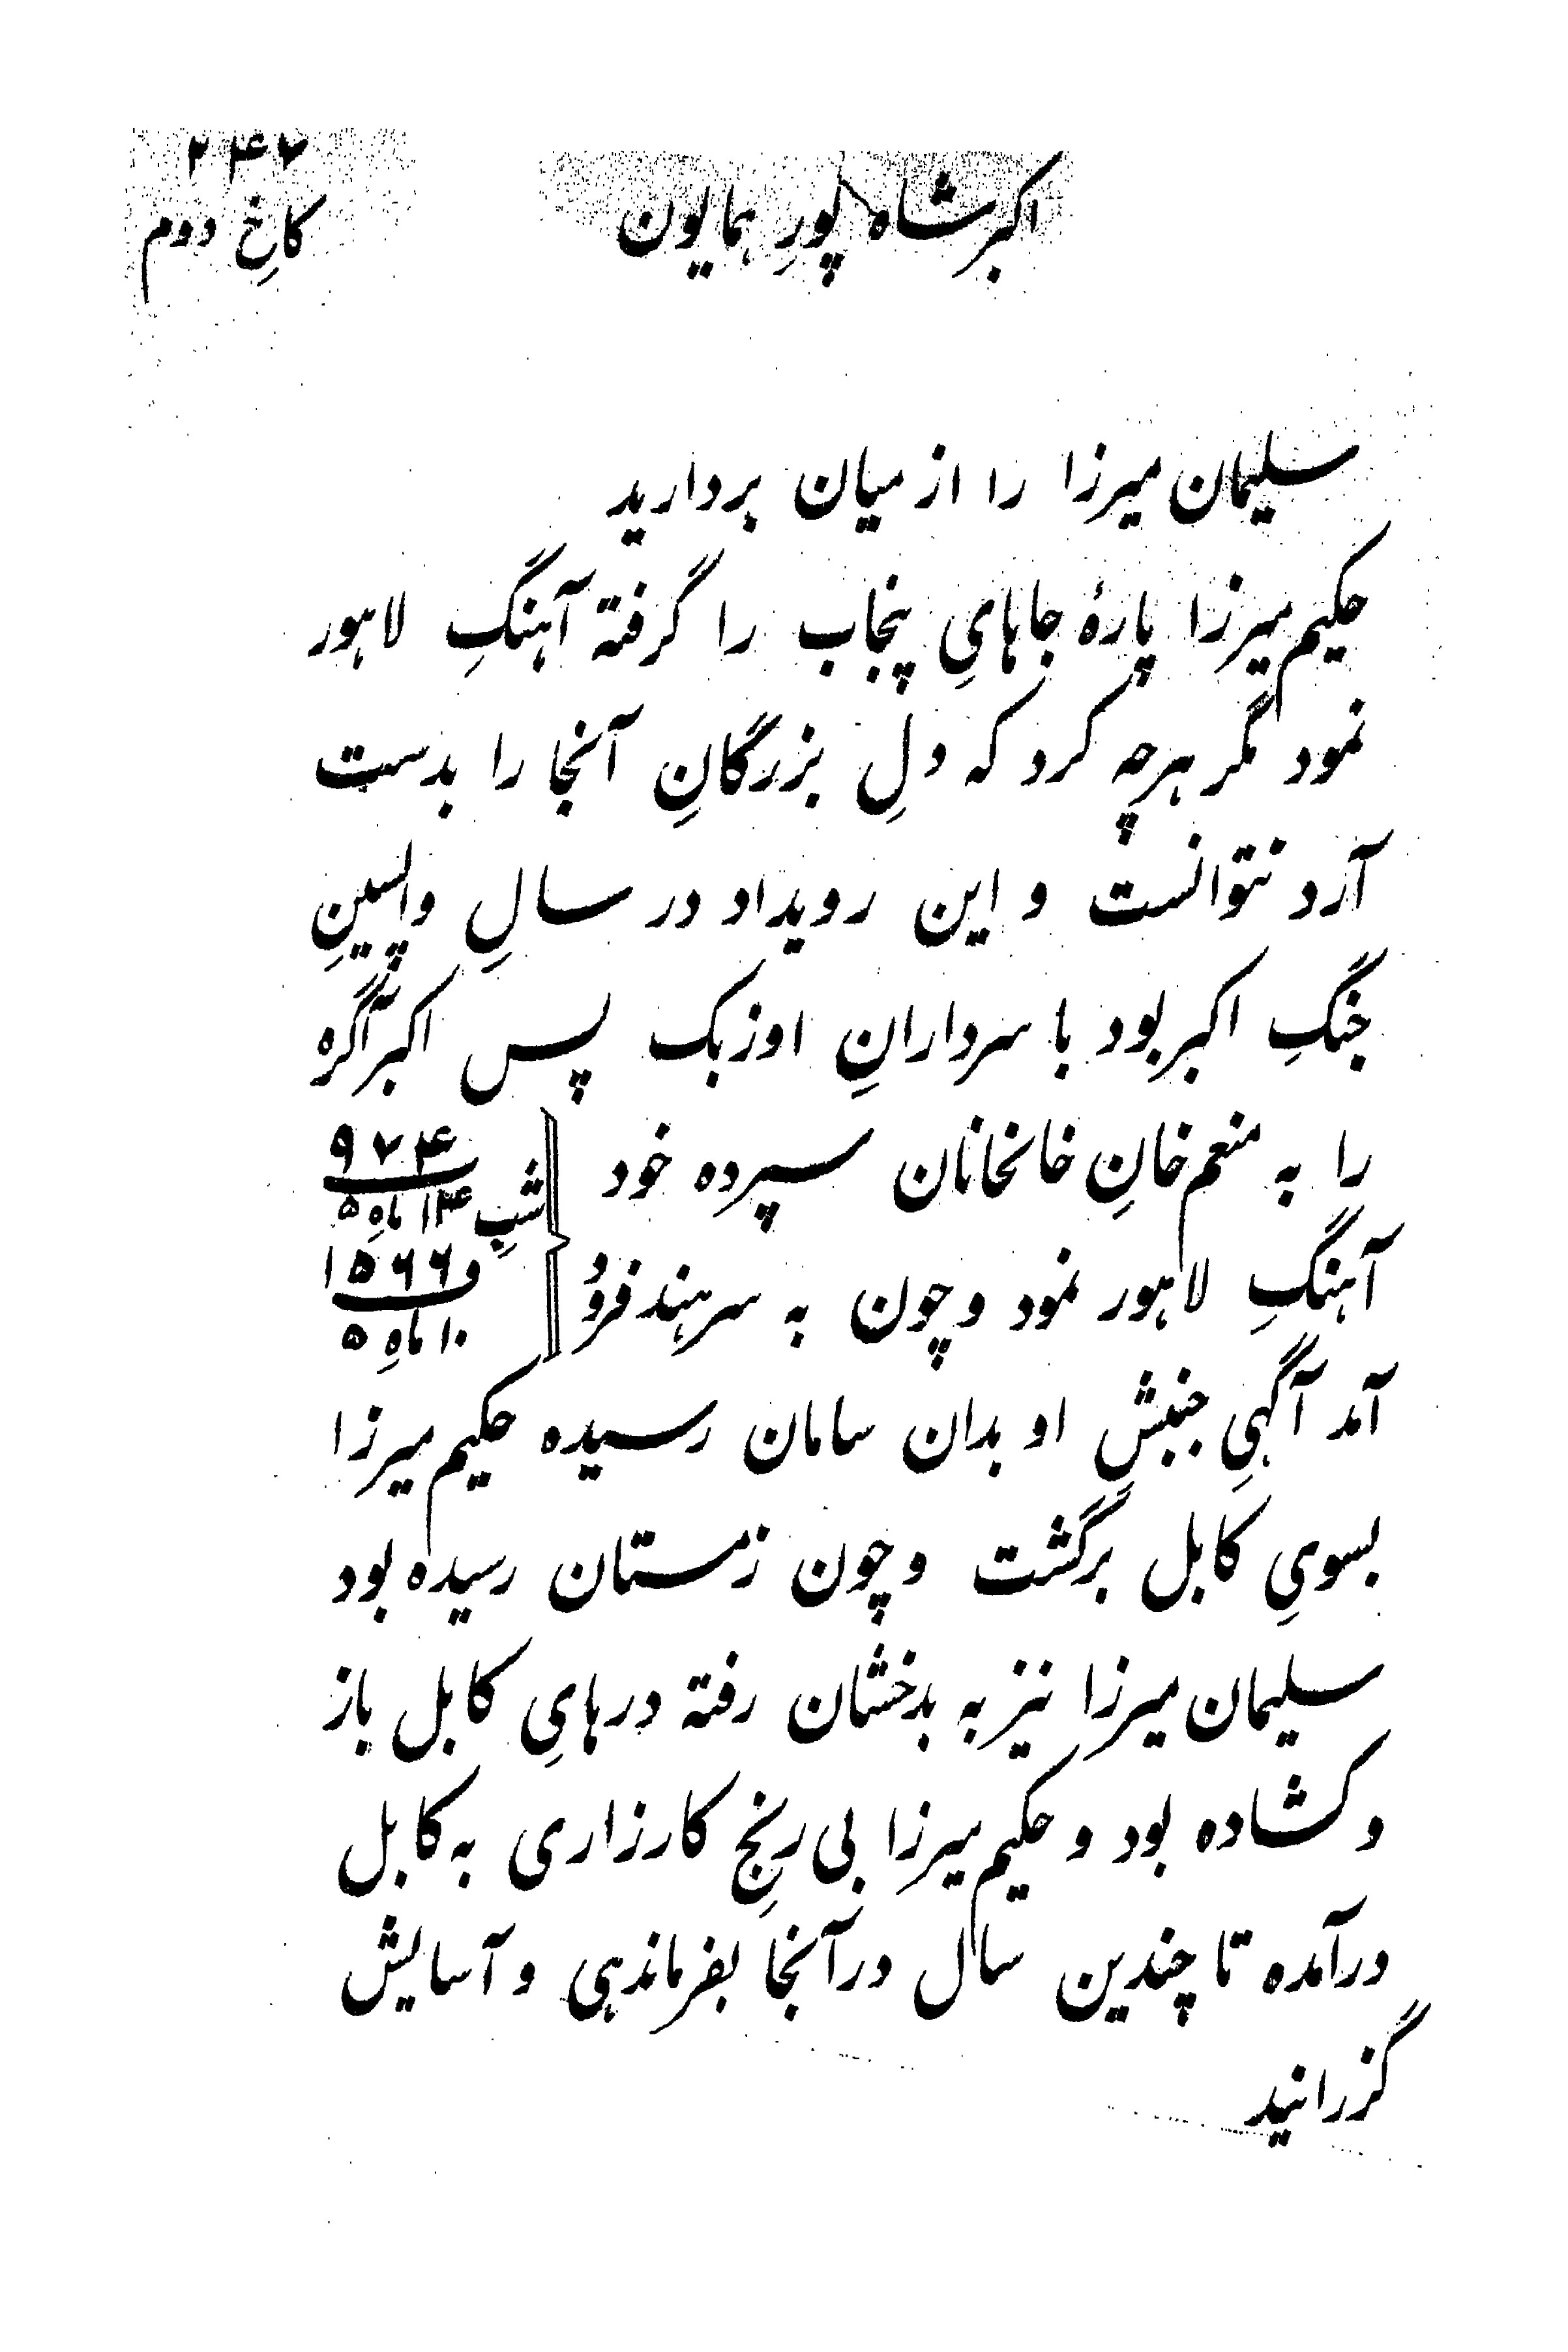 ۲۴۷
اکبرشاه پورِ همایون
کاخِ دوم
سلیمان میرزا را از میان بردارید
حکیم میرزا پارهٔ جاهایِ پنجاب را گرفته آهنگِ لاهور
نمود مگر هرچه کرد که دلِ بزرگانِ آنجا را بدست
آرد نتوانست و این رویداد در سالِ واپسینِ
جنگِ اکبر بود با سردارانِ اوزبک پس اکبر آگره
را به منعم خانِ خانخانان سپرده خود
آهنگِ لاهور نمود و چون به سرهند فرُو
۹۷۴
شبِ ۱۴ ماهِ ۵
و ۱۵۶۶
۱۰ ماهِ ۵
آمد آگهیِ جنبشِ او بدان سامان رسیده حکیم میرزا
بسویِ کابل برگشت و چون زمستان رسیده بود
سلیمان میرزا نیز به بدخشان رفته درهایِ کابل باز
و کشاده بود و حکیم میرزا بی رنجِ کارزاری به کابل
درآمده تا چندین سال درآنجا بفرماندهی و آسایش
گزرانید